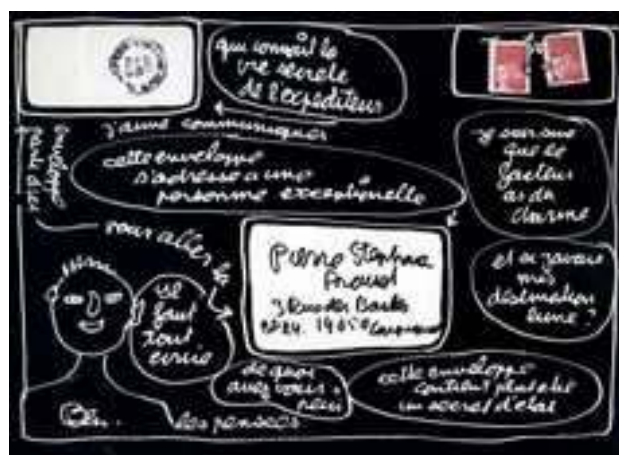 qui connaît la
vie secrete
de l'expediteur
j'aime communiquer
cette enveloppe
s'adresse a une
personne exceptionelle
je suis sure
que le
facteur
a du
charme
enveloppe
vous aller
Pierre Stephane
Proust
et si j'avais
mis
destination
lune ?
il
faut
tout
ecrire
de quoi
avez vous
cette enveloppe
contient plus
un secret d'etat
les pensees